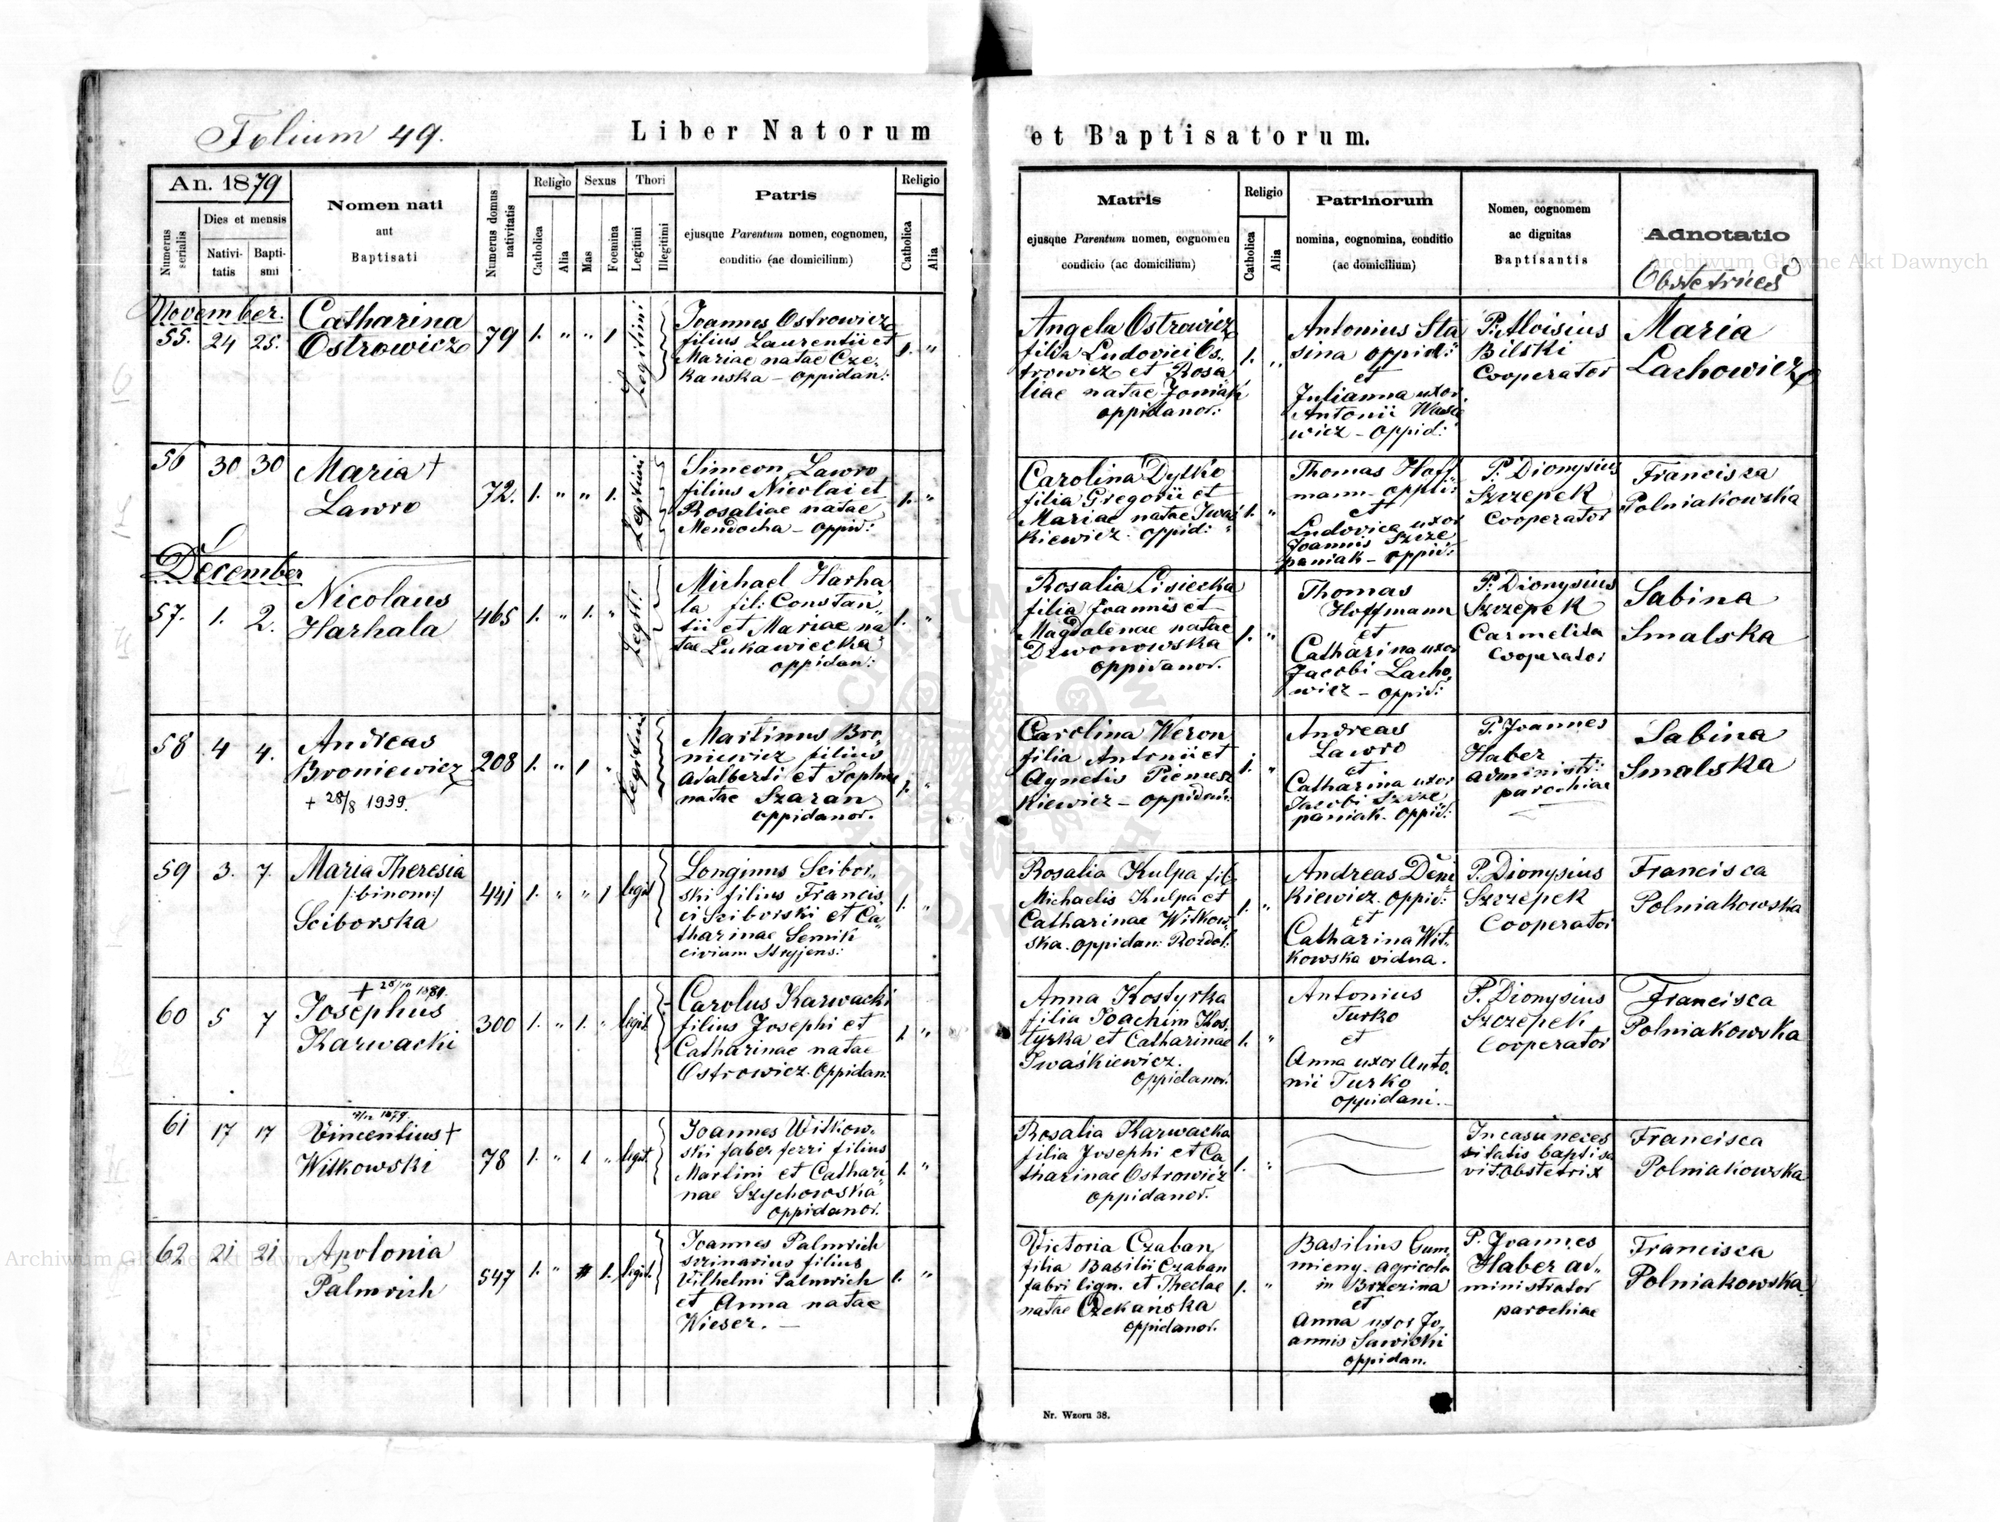 Folium 49.
Liber Natorum et Baptisatorum.
An. 1879
Numerus serialis
Dies et mensis
Nativitatis
Baptismi
Nomen nati
aut
Baptisati
Numerus domus nativitatis
Religio
Catholica
Alia
Sexus
Mas
Foemina
Thori
Legitimi
Illegitimi
Patris
ejusque Parentum nomen, cognomen,
conditio (ac domicilium)
Religio
Catholica
Alia
Matris
ejusque Parentum nomen, cognomen
condicio (ac domicilium)
Religio
Catholica
Alia
Patrinorum
nomina, cognomina, conditio
(ac domicilium)
Nomen, cognomen
ac dignitas
Baptisantis
Adnotatio
Obstetrices
November.
55. 24 25.
Catharina
Ostrowicz
79 1. " " 1 Legitimi
Joannes Ostrowicz
filius Laurentii et
Mariae natae Cze-
kanska - oppidan:
1. "
Angela Ostrowicz
filia Ludovici Os-
trowicz et Rosa
liae natae Joniak
oppidanor:
1. "
Antonius Sta
sina oppid:
et
Julianna uxor
Antonii
wicz - oppid:
P. Aloisius
Bilski
Cooperator
Maria
Lachowicz
56 30 30
Maria †
Lawro
72. 1. " " 1. Legitimi
Simeon Lawro
filius Nicolai et
Rosaliae natae
Mendocha - oppid:
1. "
Carolina Dytko
filia Gregorii et
Mariae natae Iwaś
kiewicz. oppid:
1. "
Thomas Hoff
mann - oppid:
et
Ludovica uxor
Joannis Szcze
paniak - oppid:
P. Dionysius
Szczepek
Cooperator
Francisca
Polniakowska
December
57. 1. 2.
Nicolaus
Harhala
465 1. " 1. " Legiti:
Michael Harha
la fil: Constan
tii et Mariae na
tae Lukawiecka
oppidan:
1. "
Rosalia Lisiecka
filia Joannis et
Magdalenae natae
Dzwonowska
oppidanor.
1. "
Thomas
Hoffmann
et
Catharina uxor
Jacobi Lacho
wicz - oppid:
P. Dionysius
Szczepek
Carmelita
Cooperator
Sabina
Smalska
58 4 4.
Andreas
Broniewicz
+ 28/8 1939.
208 1. " 1 " Legitimi
Martinus Bro
niewicz filius
Adalberti et Sophiae
natae Szaran
oppidanor.
1. "
Carolina Weron
filia Antonii et
Agnetis Piemesz
kiewicz - oppidan:
1. "
Andreas
Lawro
et
Catharina uxor
Jacobi Szcze
paniak - oppid:
P. Joannes
Haber
administr:
parochiae
Sabina
Smalska
59 3. 7.
Maria Theresia
/:binom:/
Sciborska
441 1. " " 1 legit
Longinus Scibor-
ski filius Francis
ci Sciborski et Ca
tharinae Semik
civium Stryjens:
1. "
Rosalia Kulpa fil.
Michaelis Kulpa et
Catharinae Witkow-
ska. oppidan: Rozdol.
1. "
Andreas Deni
kiewicz. oppid:
et
Catharina Wit-
kowska vidua.
P. Dionysius
Szczepek
Cooperator
Francisca
Polniakowska
60 5 7
Josephus
Karwacki
300 1. " 1. " legit.
Carolus Karwacki
filius Josephi et
Catharinae natae
Ostrowicz. Oppidan:
1. "
Anna Kostyrka
filia Joachim Kos-
tyrka et Catharinae
Iwaśkiewicz.
oppidanor.
1. "
Antonius
Turko
et
Anna uxor Anto-
nii Turko
oppidani.
P. Dionysius
Szczepek
Cooperator
Francisca
Polniakowska
61 17 17
Vincentius †
Witkowski
78 1. " 1 " legit.
Joannes Witkow-
ski faber ferri filius
Martini et Cathari
nae Szychowska
oppidanor.
1. "
Rosalia Karwacka
filia Josephi et Ca
tharinae Ostrowicz
oppidanor.
1. "
In casu neces
sitatis baptisa
vit obstetrix
Francisca
Polniakowska
62 21 21
Apolonia
Palmrich
547 1. " 1. legit.
Joannes Palmrich
scrinarius filius
Wilhelmi Palmrich
et Anna natae
Wieser. -
1. "
Victoria Czaban
filia Basilii Czaban
fabri lign. et Theclae
natae Czekańska
oppidanor.
1. "
Basilius Gum
mieny. agricola
in Brzezina
et
Anna uxor Jo
annis Sawicki
oppidan.
P. Joannes
Haber ad-
ministrator
parochiae
Francisca
Polniakowska
Nr. Wzoru 38.
Archiwum Główne Akt Dawnych
Archiwum Główne Akt Dawnych